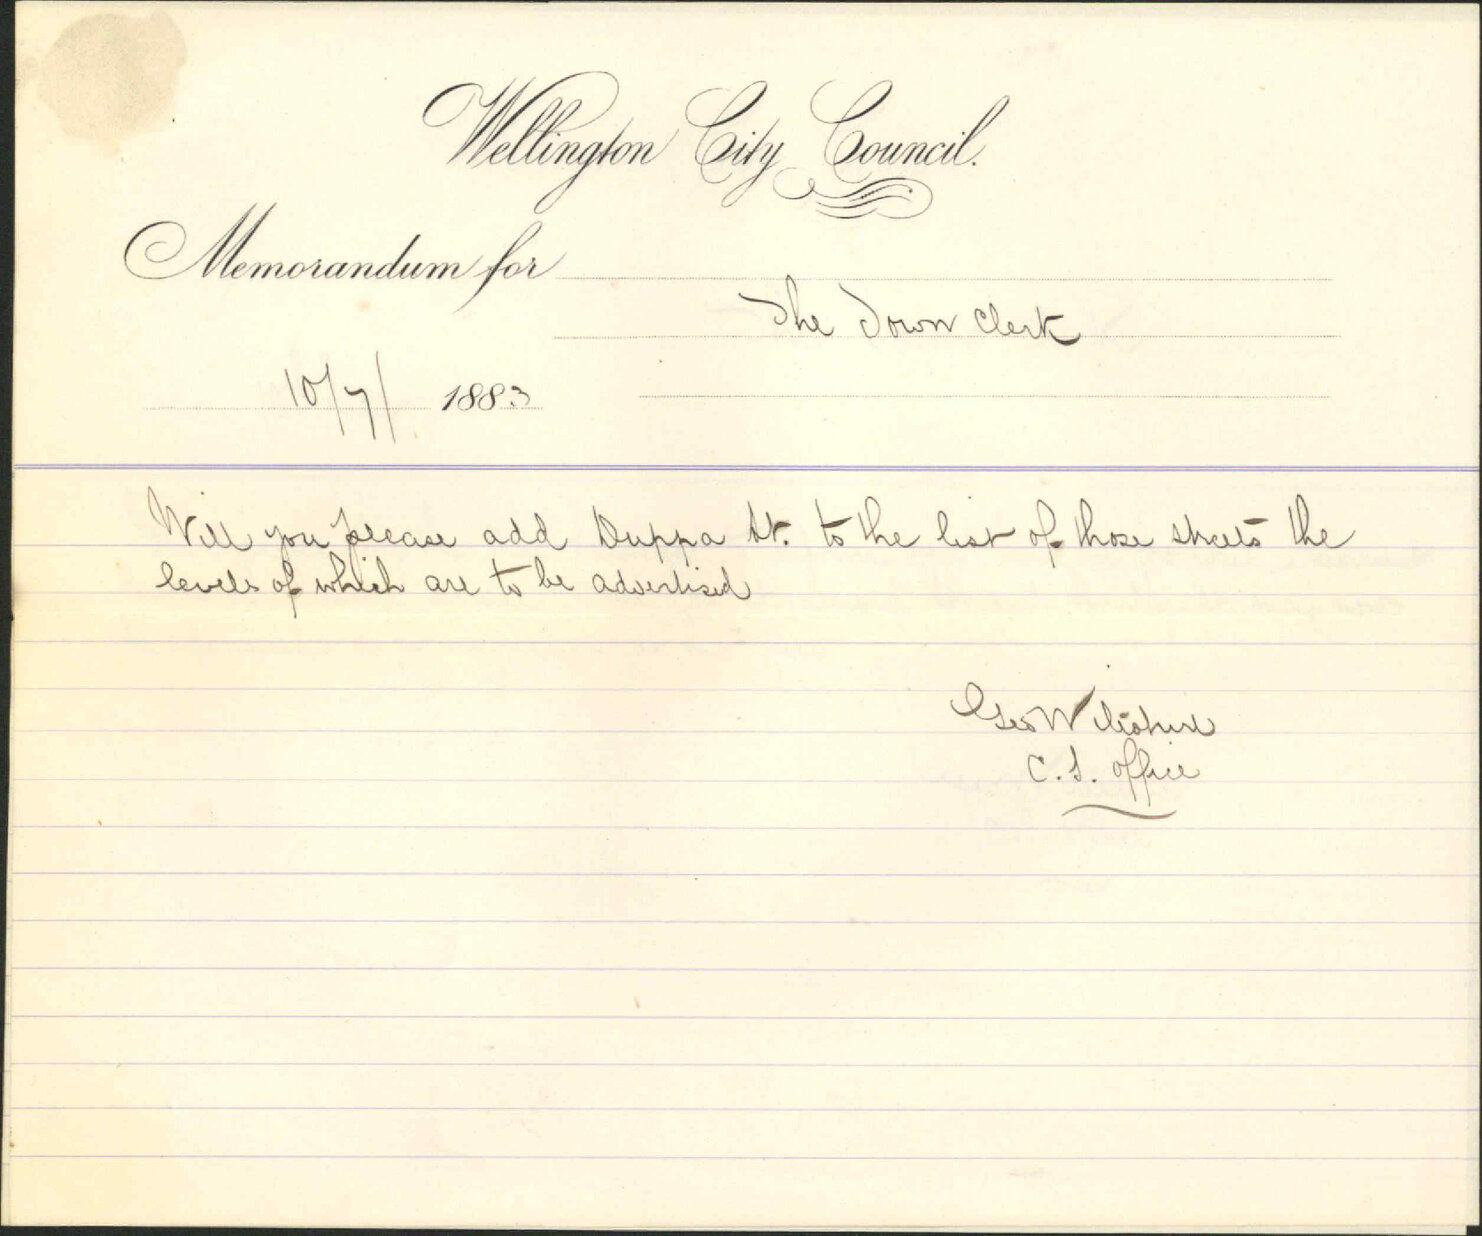 Wellington City Council.
Memorandum for
The Town Clerk
10/7/ 1883
Will you please add Duppa St. to the list of those streets the
levels of which are to be advertised
Geo Wiltshire
C.S. Office